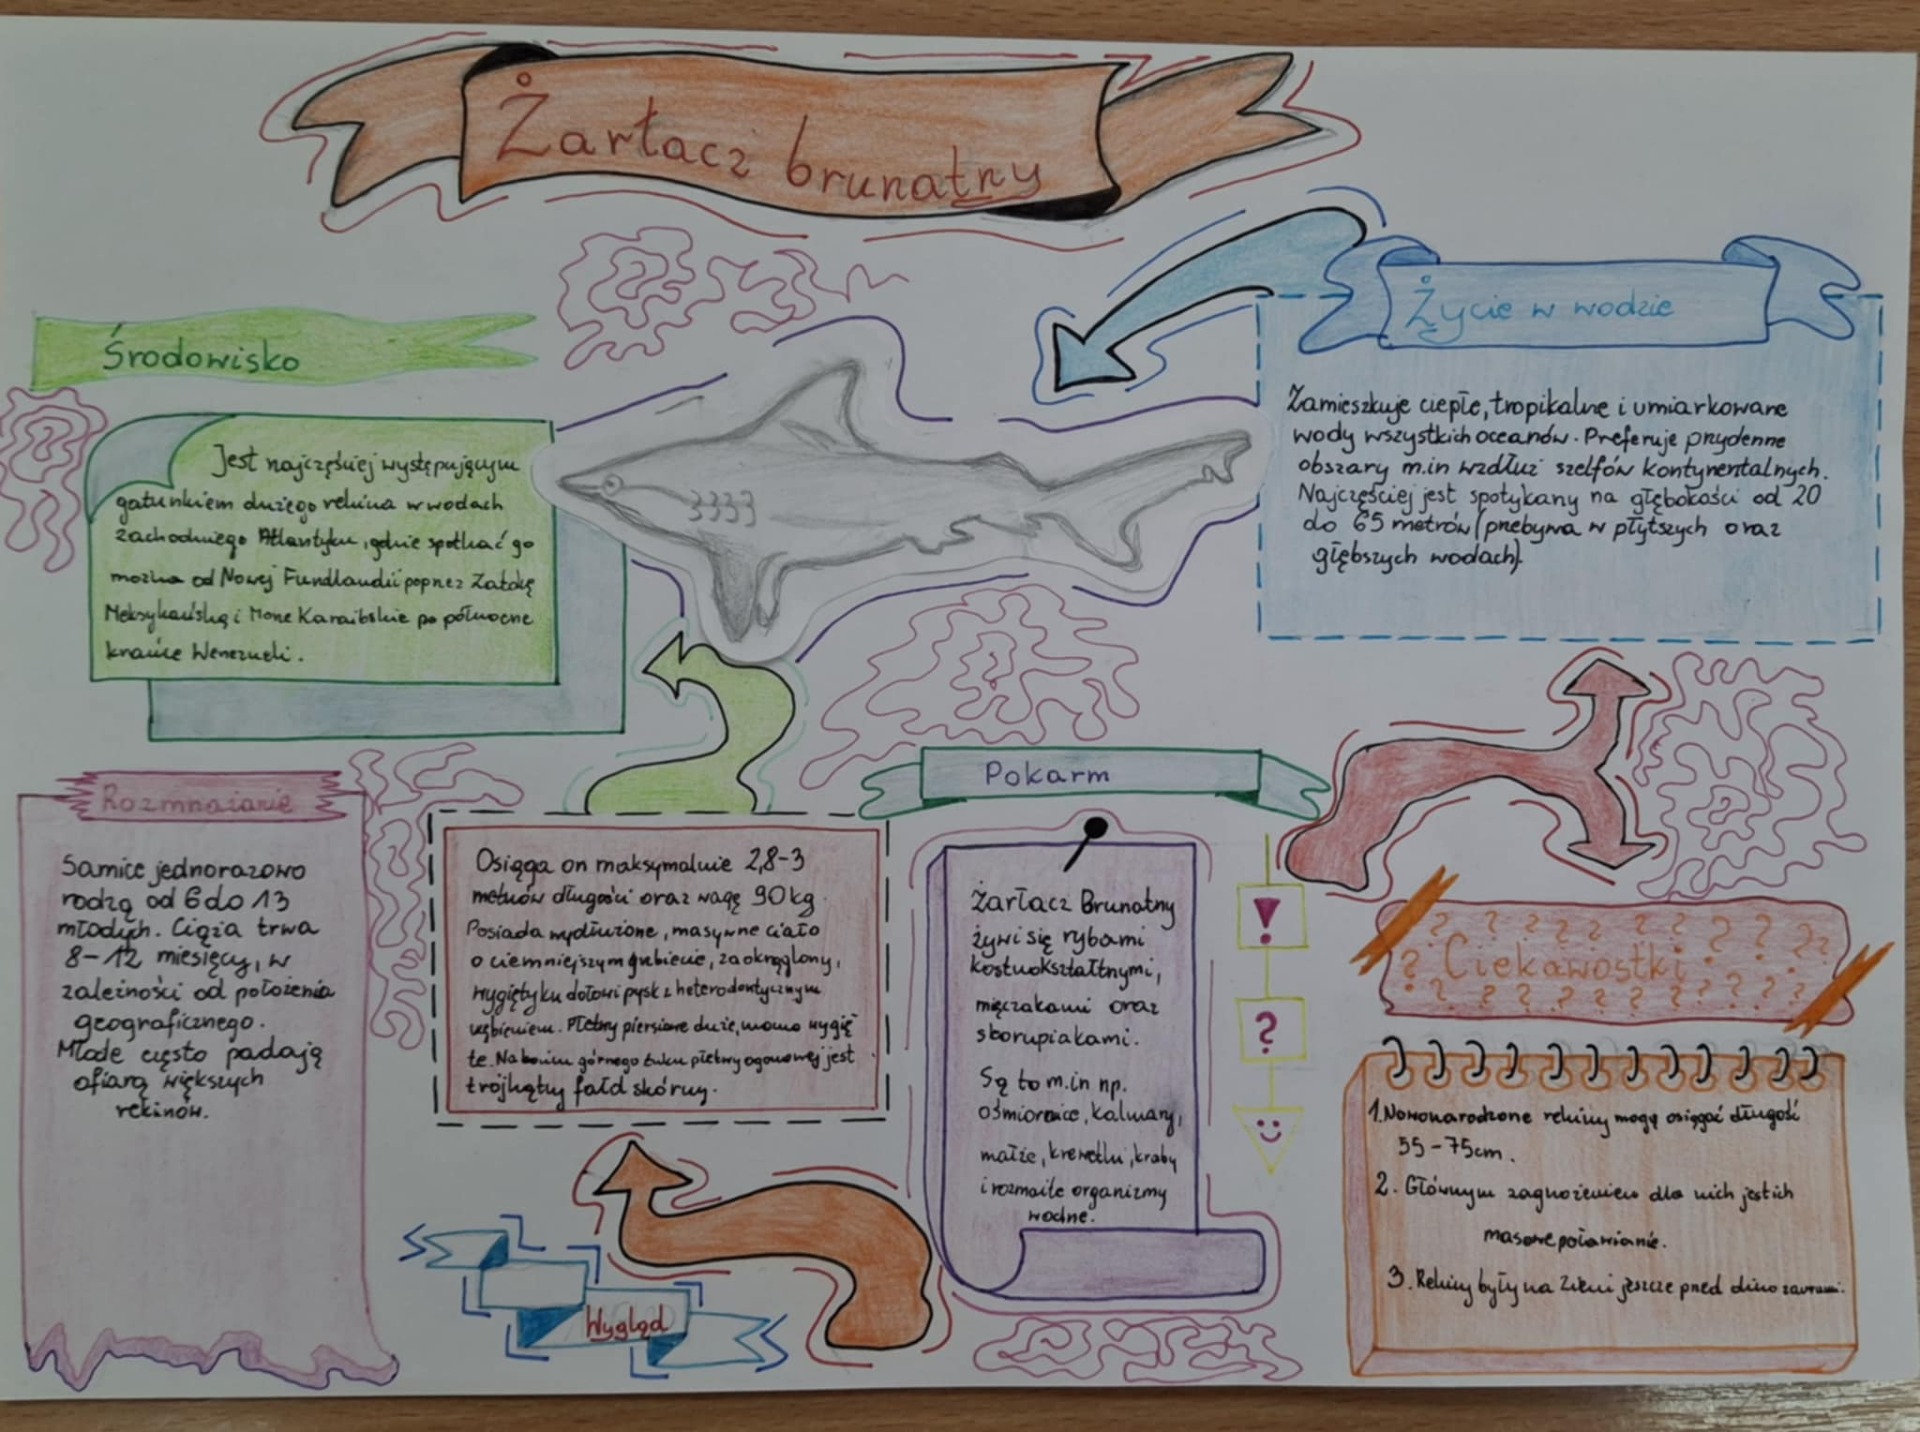 Żarłacz brunatny
Środowisko
Jest najczęściej występującym
gatunkiem dużego rekina w wodach
zachodniego Atlantyku, gdzie spotkać go
można od Nowej Fundlandii poprzez Zatokę
Meksykańską i Morze Karaibskie po północne
krańce Wenezueli.
Życie w wodzie
Zamieszkuje ciepłe, tropikalne i umiarkowane
wody wszystkich oceanów. Preferuje przydenne
obszary m.in wzdłuż szelfów kontynentalnych.
Najczęściej jest spotykany na głębokości od 20
do 65 metrów (przebywa w płytszych oraz
głębszych wodach).
Rozmnażanie
Samice jednorazowo
rodzą od 6 do 13
młodych. Ciąża trwa
8-12 miesięcy, w
zależności od położenia
geograficznego.
Młode często padają
ofiarą większych
rekinów.
Osiąga on maksymalnie 2,8-3
metrów długości oraz wagę 90kg.
Posiada wydłużone, masywne ciało
o ciemniejszym grzbiecie, zaokrąglony,
wygięty ku dołowi pysk z heterodontycznym
uzębieniem. Płetwy piersiowe duże, mocno wygię
te. Na końcu górnego łuku płetwy ogonowej jest
trójkątny fałd skórny.
Wygląd
Pokarm
Żarłacz Brunatny
żywi się rybami
kostnokształtnymi,
mięczakami oraz
skorupiakami.
Są to m.in np.
ośmiornice, kalmary,
małże, krewetki, kraby
i rozmaite organizmy
wodne.
!
?
Ciekawostki
1. Nowonarodzone rekiny mogą osiągać długość
55-75cm.
2. Głównym zagrożeniem dla nich jest ich
masowe poławianie.
3. Rekiny były na Ziemi jeszcze przed dinozaurami.